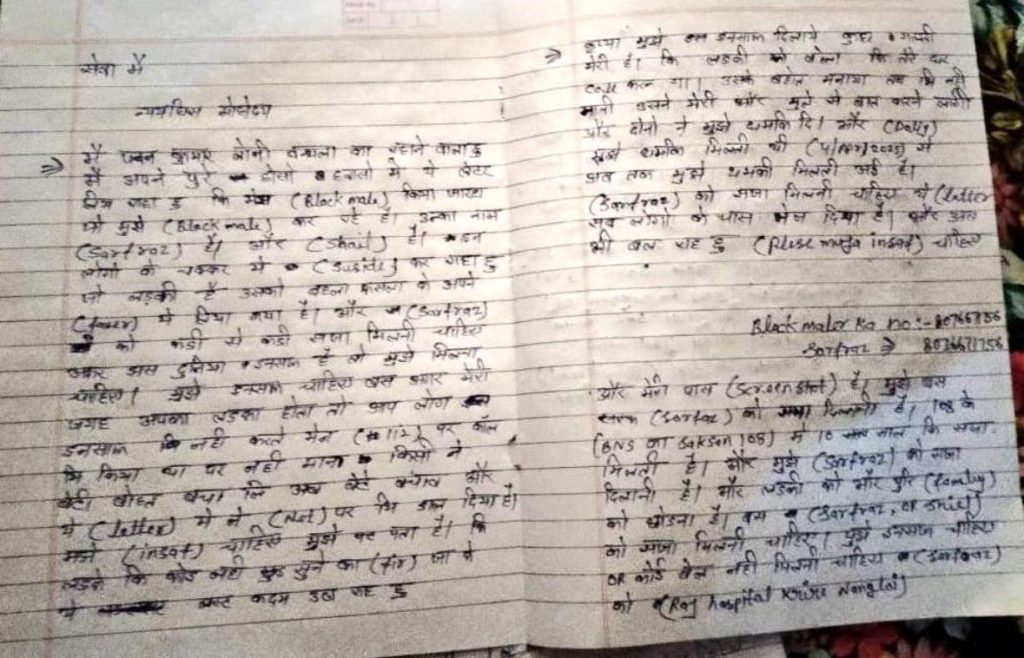 सेवा में
न्यायधिश मोहोदय
मै पवन कुमार लोनी बन्थला का रहाने वाला हु
मै अपने पुरे होसो हवासो मे ये लेटर
लिख रहा हु कि मेरा (Blackmale) किया जारहा
जो मुझे (Blackmale) कर रहे है। उनका नाम
(Sarfraz) है। और (Shail) है। इन
लोगो के चक्कर मे (Suside) कर राहा हु
जो लड़की है उसको बहला फुसला के अपने
(faver) मे लिया गया है। और (Sarfraz)
को कड़ी से कड़ी सजा मिलनी चाहिए
अगर इस दुनिया इनसाफ है तो मुझे मिलना
चाहिए। मुझे इनसाफ चाहिए बस अगर मेरी
जगह अपका लड़का होता तो आप लोग
इनसाफ कि नही करते मेने (112) पर कॉल
भि किया था पर नही माना किसी ने
बेटी बोहत बचा लि अब बेटे बचाव और
ये (letter) मे ने (Net) पर भि डाल दिया है।
मुझे (insaf) चाहिए मुझे पर पता है। कि
लड़के कि कोई नही सुने का (fir) जा के
ये कदम उठा रहा हु
कृप्या मुझे इनसाफ दिलाये गलती
मेरी है। कि लड़की को बोला कि तेरे घर
Call करू गा। उसके बहोत मनाया तब भि नही
मानी उसने मेरी और से बात करने लागी
और दोनो ने मुझे धमकि दि। और (Daily)
मुझे धमकि मिलती थी (4/ /2025) से
अब तक मुझे धमकी मिलती आई है।
(Sarfraz) को सजा मिलनी चाहिए ये (letter
सब लोगो के पास भेज दिया है। और अब
भी बोल रहा हु (Plese mujha insaf) चाहिए
Blackmaler ka no:- 80766
Sarfraz → 8076671756
और मेरे पास (Screenshot) है। मुझे बस
(Sarfaz) को सजा दिलानी है। 108 के
(BNS का Sakson 108) मे 10 साल कि सजा
मिलती है। और मुझे (Sarfraz) को सजा
दिलानी है। और लड़की को और पुरि (family)
को छोडना है। बस (Sarfraz, or Shail)
को सजा मिलनी चाहिए। मुझे इनसाफ चाहिए
OR कोई बेल नही मिलनी चाहिए (Sarfraz)
को (Raj hospital Nangloi)